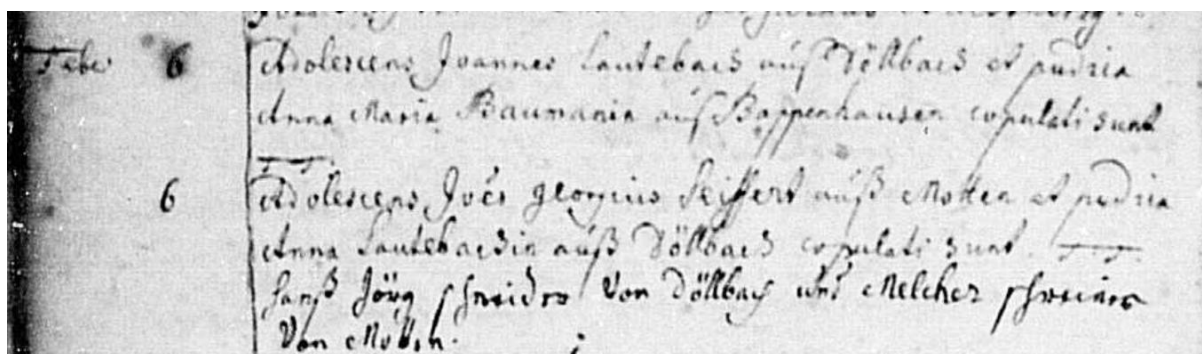 Febr 6 Adolescens Joannes Lautebach auß Döllbach et pudica
Anna Maria Baumania auß Bappenhausen copulati sunt
6 Adolescens Joēs Georgius Seiffert auß Motten et pudica
Anna Lautebachin auß Döllbach copulati sunt.
Hanß Jörg Von Döllbach und Melcher
Von Motten.